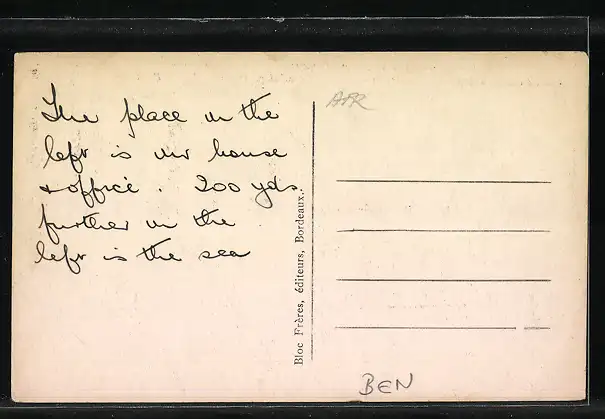 The place on the
left is our house
& office. 200 yds
further on the
left is the sea
Bloc Frères, éditeurs, Bordeaux.
AFR
BEN